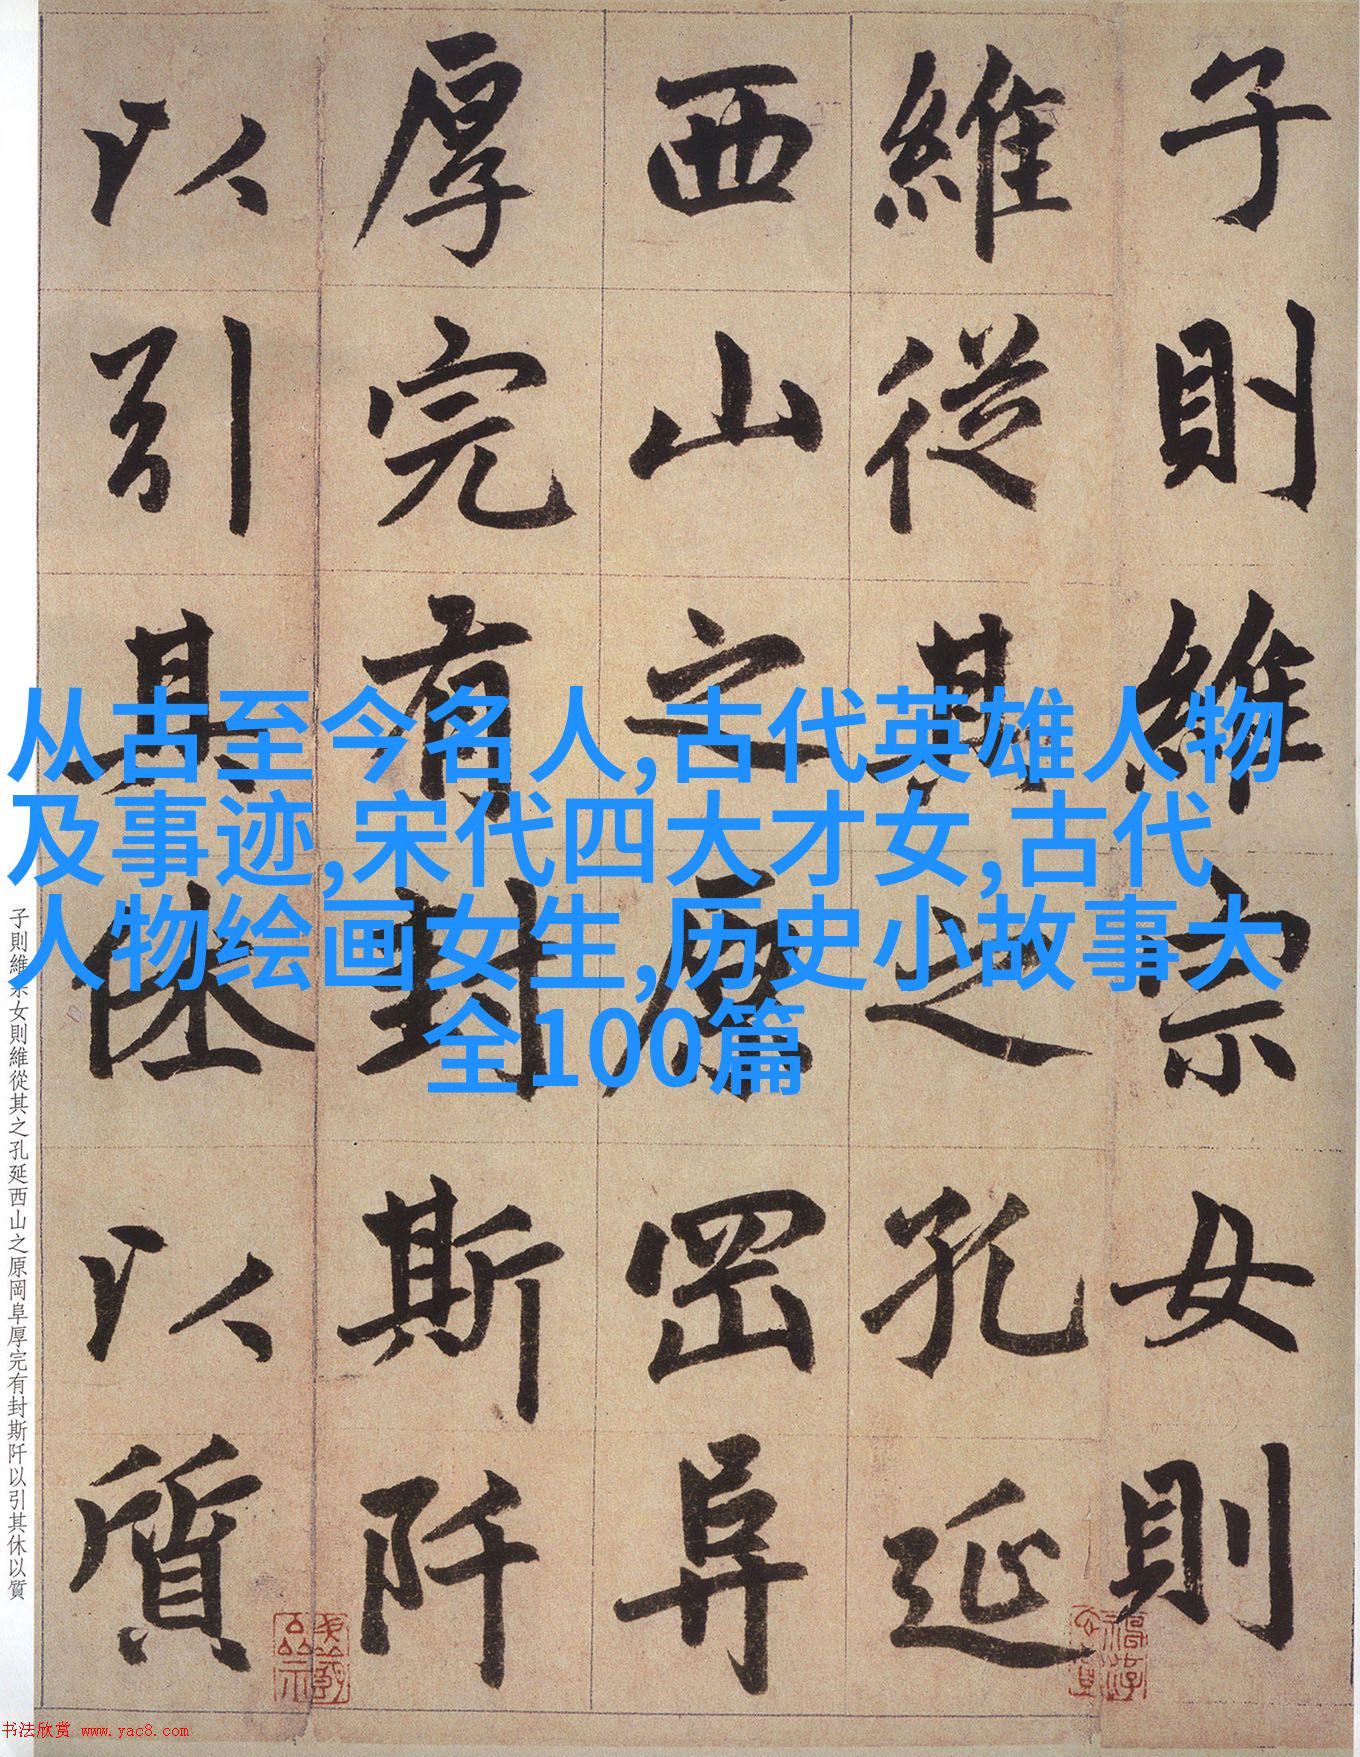 子則維宗女則
維從其之孔延
西山之原岡阜
厚完有封斯阡
以引其休以質
从古至今名人,古代英雄人物
及事迹,宋代四大才女,古代
人物绘画女生,历史小故事大
全100篇
子則維宗女則維從其之孔延西山之原岡阜厚完有封斯阡以引其休以質
书法欣赏 www.yac8.com